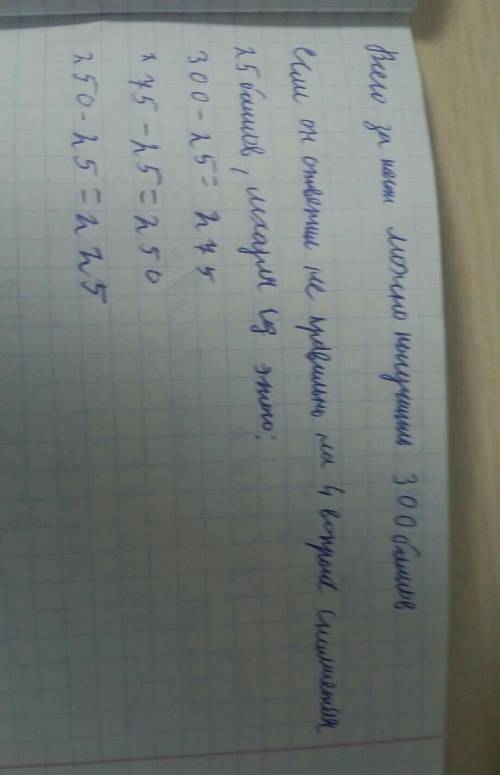 Всего за  можно получить 300 баллов
если он ответил не правильно на 4 вопрос снимается
25 баллов,  из этого:
300 - 25 = 275
275 - 25 = 250
250 - 25 = 225